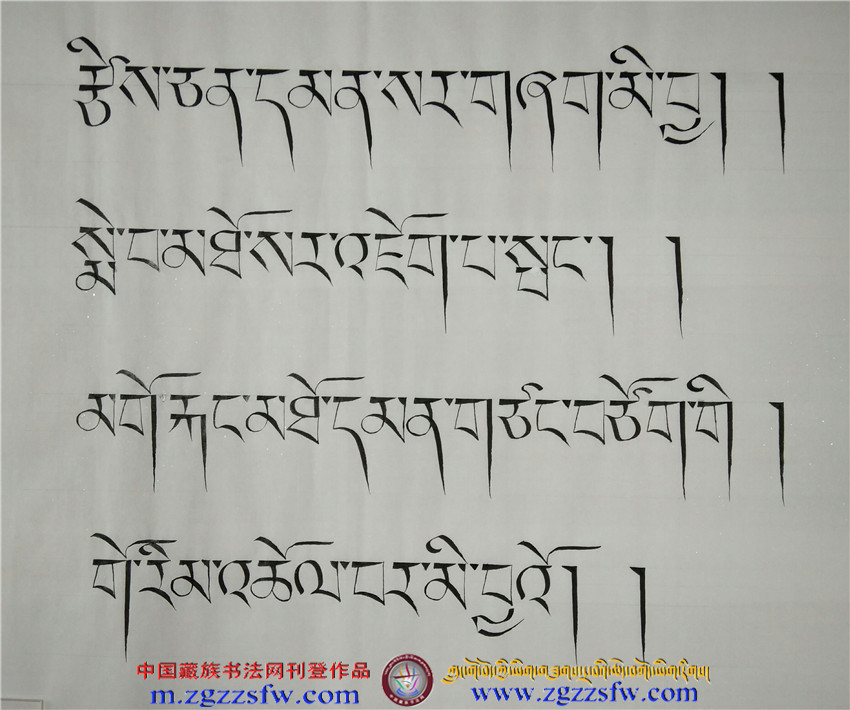 རྩིས་ཅན་དམན་སར་གཞག་མི་བྱ། །
སྨེ་བ་མཐོ་སར་འཇོག་པ་སྤང་། །
མགོ་རྐང་མཐོ་དམན་གཙང་བཙོག་གི །
གོ་རིམ་འཆོལ་བར་མི་བྱའོ། །
中国藏族书法网刊登作品
m.zgzzsfw.com www.zgzzsfw.com